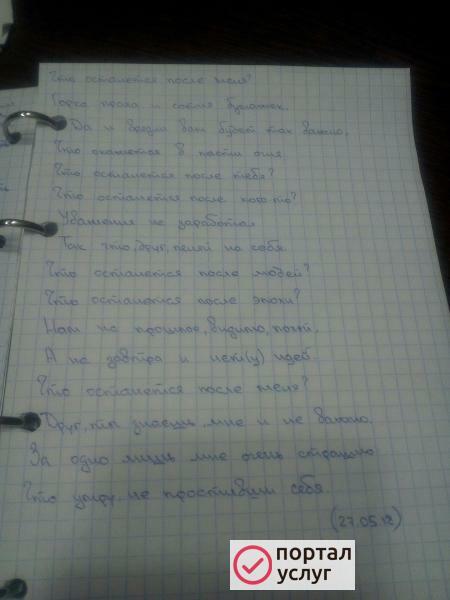 Что останется после меня?
Горка праха и сотня бумажек.
Да и вряд ли вам будет так важно,
Что окажется в пасти огня.
Что останется после тебя?
Что останется после кого-то?
Уважения не заработал
Так что, друг, пеняй на себя.
Что останется после людей?
Что останется после эпохи?
Нам на прошлое, видимо, похуй,
А на завтра и нет(у) идей
Что останется после меня?
Друг, ты знаешь, мне и не важно.
За одно лишь мне очень страшно
Что умру, не простивши себя.
(27.05.12)
портал
услуг